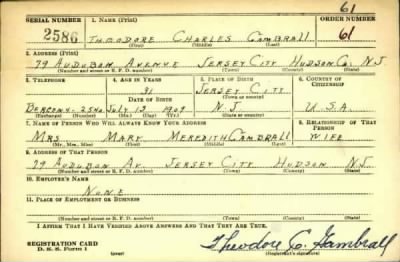 61
SERIAL NUMBER 1. NAME (Print) ORDER NUMBER
2586 THEODORE CHARLES GAMBRALL 61
(First) (Middle) (Last)
2. ADDRESS (Print)
79 AUDUBON AVENUE JERSEY CITY HUDSON CO. N.J.
(Number and street or R. F. D. number) (Town) (County) (State)
3. TELEPHONE 4. AGE IN YEARS 5. PLACE OF BIRTH 6. COUNTRY OF CITIZENSHIP
31 JERSEY CITY
DATE OF BIRTH (Town or county)
BERGEN 4- JULY 1909 N.J. U.S.A.
(Exchange) (Number) (Mo.) (Day) (Yr.) (State or country)
7. NAME OF PERSON WHO WILL ALWAYS KNOW YOUR ADDRESS 8. RELATIONSHIP OF THAT PERSON
MRS MARY MEREDITH GAMBRALL WIFE
(Mr., Mrs., Miss) (First) (Middle) (Last)
9. ADDRESS OF THAT PERSON
79 AUDUBON AV. JERSEY CITY HUDSON N.J.
(Number and street or R. F. D. number) (Town) (County) (State)
10. EMPLOYER'S NAME
NONE
11. PLACE OF EMPLOYMENT OR BUSINESS
(Number and street or R. F. D. number) (Town) (County) (State)
I AFFIRM THAT I HAVE VERIFIED ABOVE ANSWERS AND THAT THEY ARE TRUE.
REGISTRATION CARD
D. S. S. Form 1 (over) Theodore C. Gambrall
(Registrant's signature)